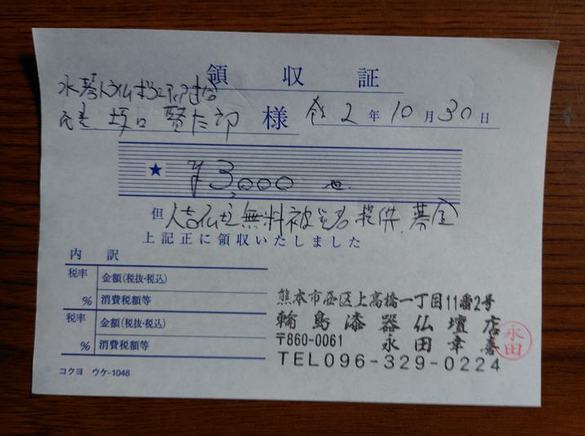 領収証
坂口 様 令2年10月30日
★ ¥3,000
但 人吉仏壇無料被災者提供 募金
上記正に領収いたしました
内訳
税率 金額(税抜・税込)
% 消費税額等
税率 金額(税抜・税込)
% 消費税額等
コクヨ ウケ-1048
熊本市西区上高橋一丁目11番2号
輪島漆器仏壇店
〒860-0061 永田幸喜
永田
TEL096-329-0224